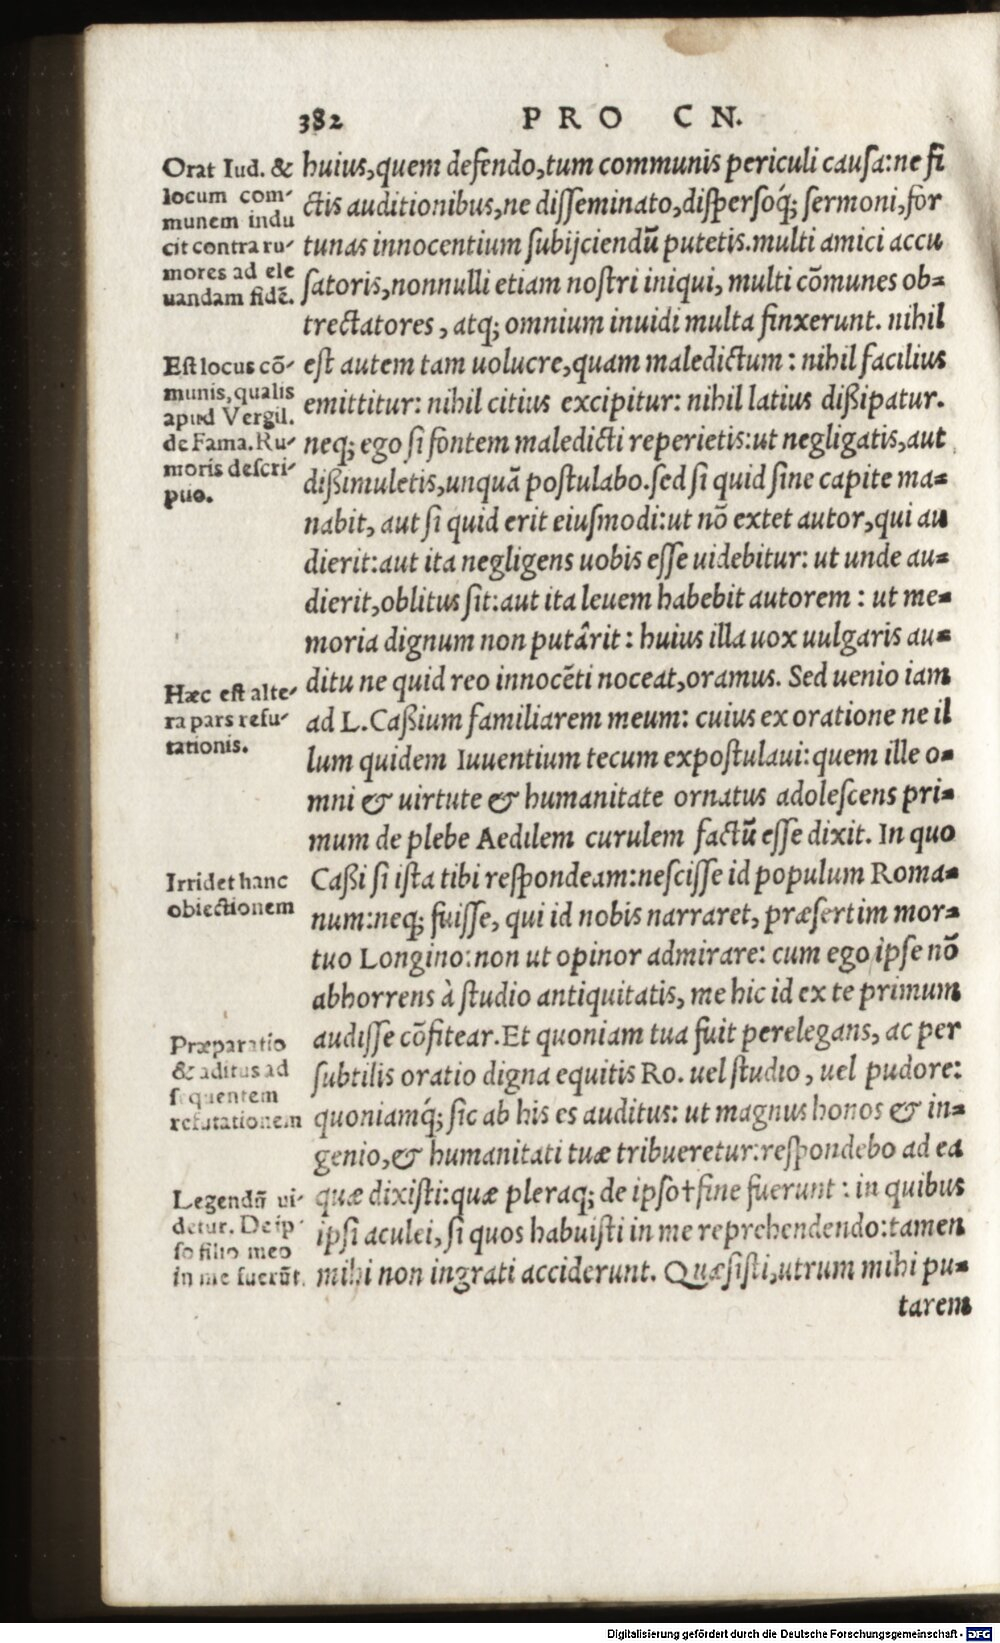 382
PRO CN.
Orat Iud. &
locum com-
munem indu
cit contra ru-
mores ad ele
uandam fidē.
Est locus cō-
munis, qualis
apud Vergil.
de Fama. Ru-
moris descri-
ptio.
Hæc est alte-
ra pars refu-
tationis.
Irridet hanc
obiectionem
Præparatio
& aditus ad
sequentem
refutationem
Legendū ui-
detur. De ip-
so filio meo
in me fuerūt.
huius, quem defendo, tum communis periculi causa: ne fi
ctis auditionibus, ne disseminato, dispersoq́; sermoni, for
tunas innocentium subijciendū putetis. multi amici accu
satoris, nonnulli etiam nostri iniqui, multi cōmunes ob-
trectatores, atq; omnium inuidi multa finxerunt. nihil
est autem tam uolucre, quam maledictum: nihil facilius
emittitur: nihil citius excipitur: nihil latius dißipatur.
neq; ego si fontem maledicti reperietis: ut negligatis, aut
dißimuletis, unquā postulabo. sed si quid sine capite ma-
nabit, aut si quid erit eiusmodi: ut nō extet autor, qui au
dierit: aut ita negligens uobis esse uidebitur: ut unde au-
dierit, oblitus sit: aut ita leuem habebit autorem: ut me-
moria dignum non putârit: huius illa uox uulgaris au-
ditu ne quid reo innocēti noceat, oramus. Sed uenio iam
ad L. Caßium familiarem meum: cuius ex oratione ne il
lum quidem Iuuentium tecum expostulaui: quem ille o-
mni & uirtute & humanitate ornatus adolescens pri-
mum de plebe Aedilem curulem factū esse dixit. In quo
Caßi si ista tibi respondeam: nescisse id populum Roma-
num: neq; fuisse, qui id nobis narraret, præsertim mor-
tuo Longino: non ut opinor admirare: cum ego ipse nō
abhorrens à studio antiquitatis, me hic id ex te primum
audisse cōfitear. Et quoniam tua fuit perelegans, ac per
subtilis oratio digna equitis Ro. uel studio, uel pudore:
quoniamq́; sic ab his es auditus: ut magnus honos & in-
genio, & humanitati tuæ tribueretur: respondebo ad ea
quæ dixisti: quæ pleraq; de ipso†fine fuerunt: in quibus
ipsi aculei, si quos habuisti in me reprehendendo: tamen
mihi non ingrati acciderunt. Quæsisti, utrum mihi pu-
tarem
Digitalisierung gefördert durch die Deutsche Forschungsgemeinschaft - DFG